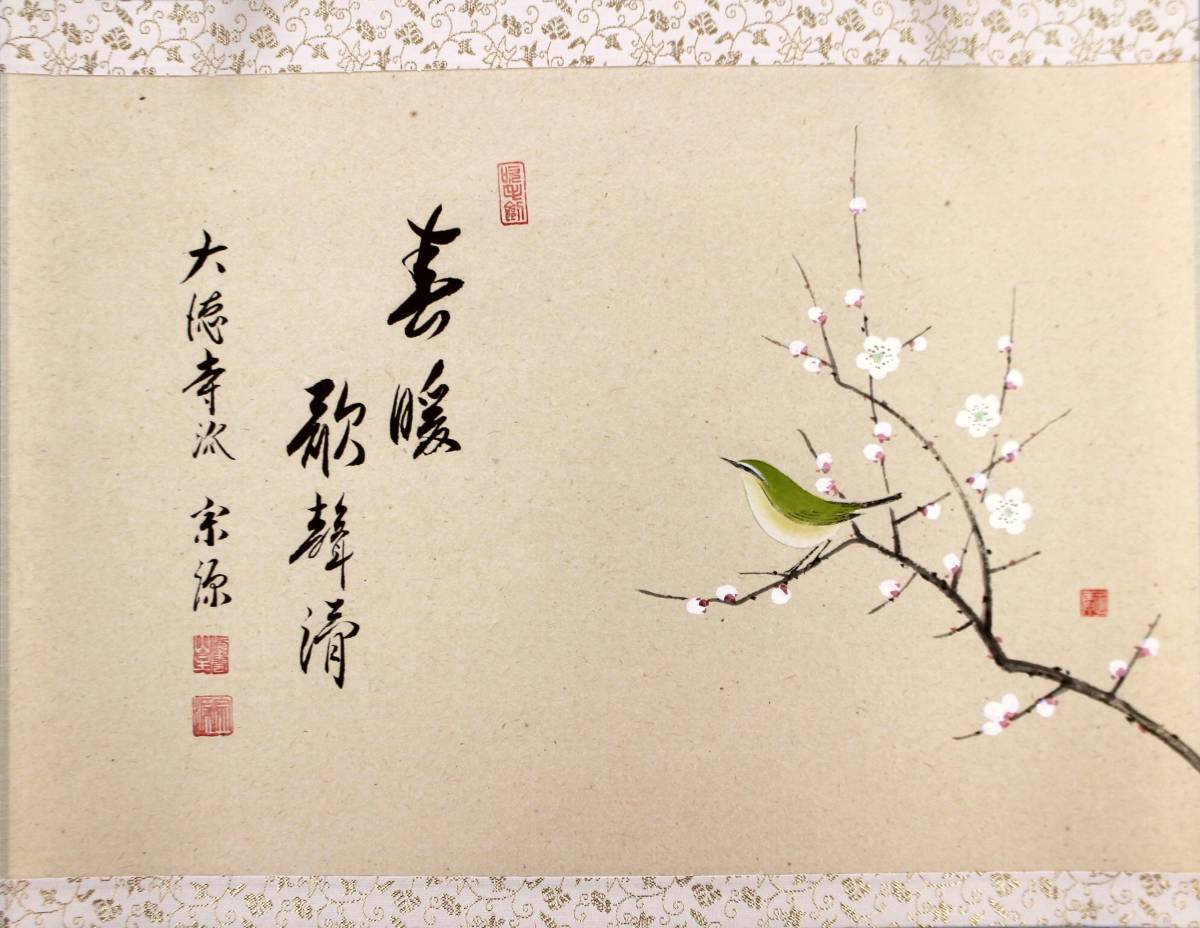 春暖
歌聲清
大徳寺派 宗源